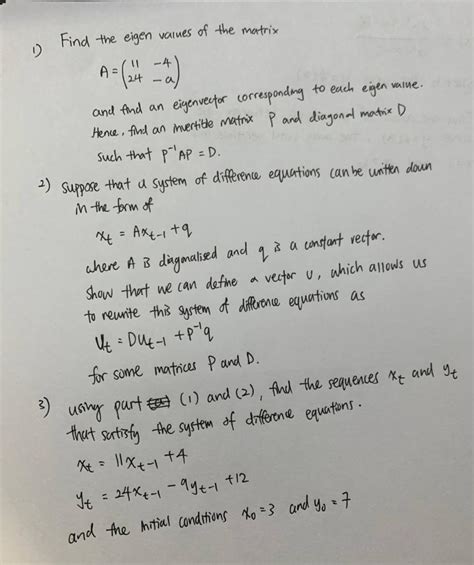 1) Find the eigen values of the matrix
A = (11 -4
24 -a)
and find an eigenvector corresponding to each eigen value.
Hence, find an invertible matrix P and diagonal matrix D
such that P⁻¹AP = D.
2) Suppose that a system of difference equations can be written down
in the form of
xt = Axt-1 + q
where A is diagonalised and q is a constant vector.
Show that we can define a vector u, which allows us
to rewrite this system of difference equations as
Ut = DUt-1 + P⁻¹q
for some matrices P and D.
3) using part (1) and (2), find the sequences xt and yt
that satisfy the system of difference equations.
xt = 11xt-1 + 4
yt = 24xt-1 - 9yt-1 + 12
and the initial conditions x₀ = 3 and y₀ = 7